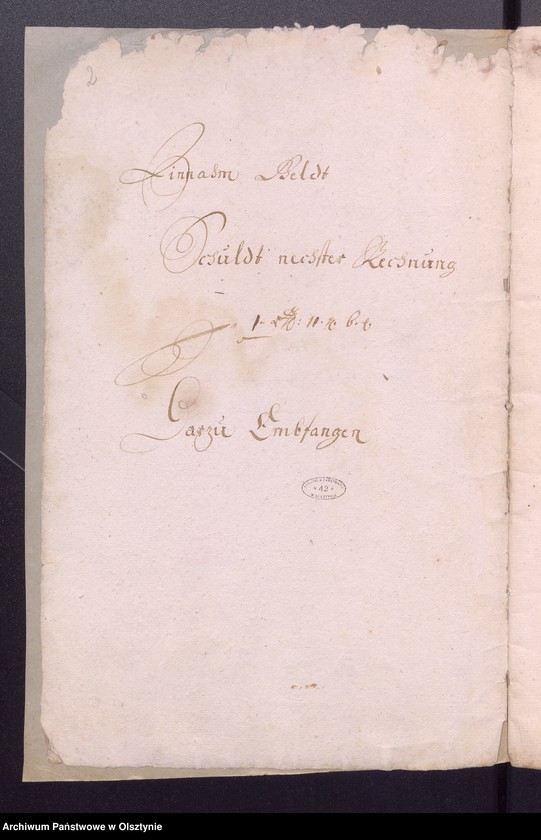 2
Einnahm Geldt
Schuldt nechster Rechnung
Darzu Embfangen
42
Archiwum Państwowe w Olsztynie